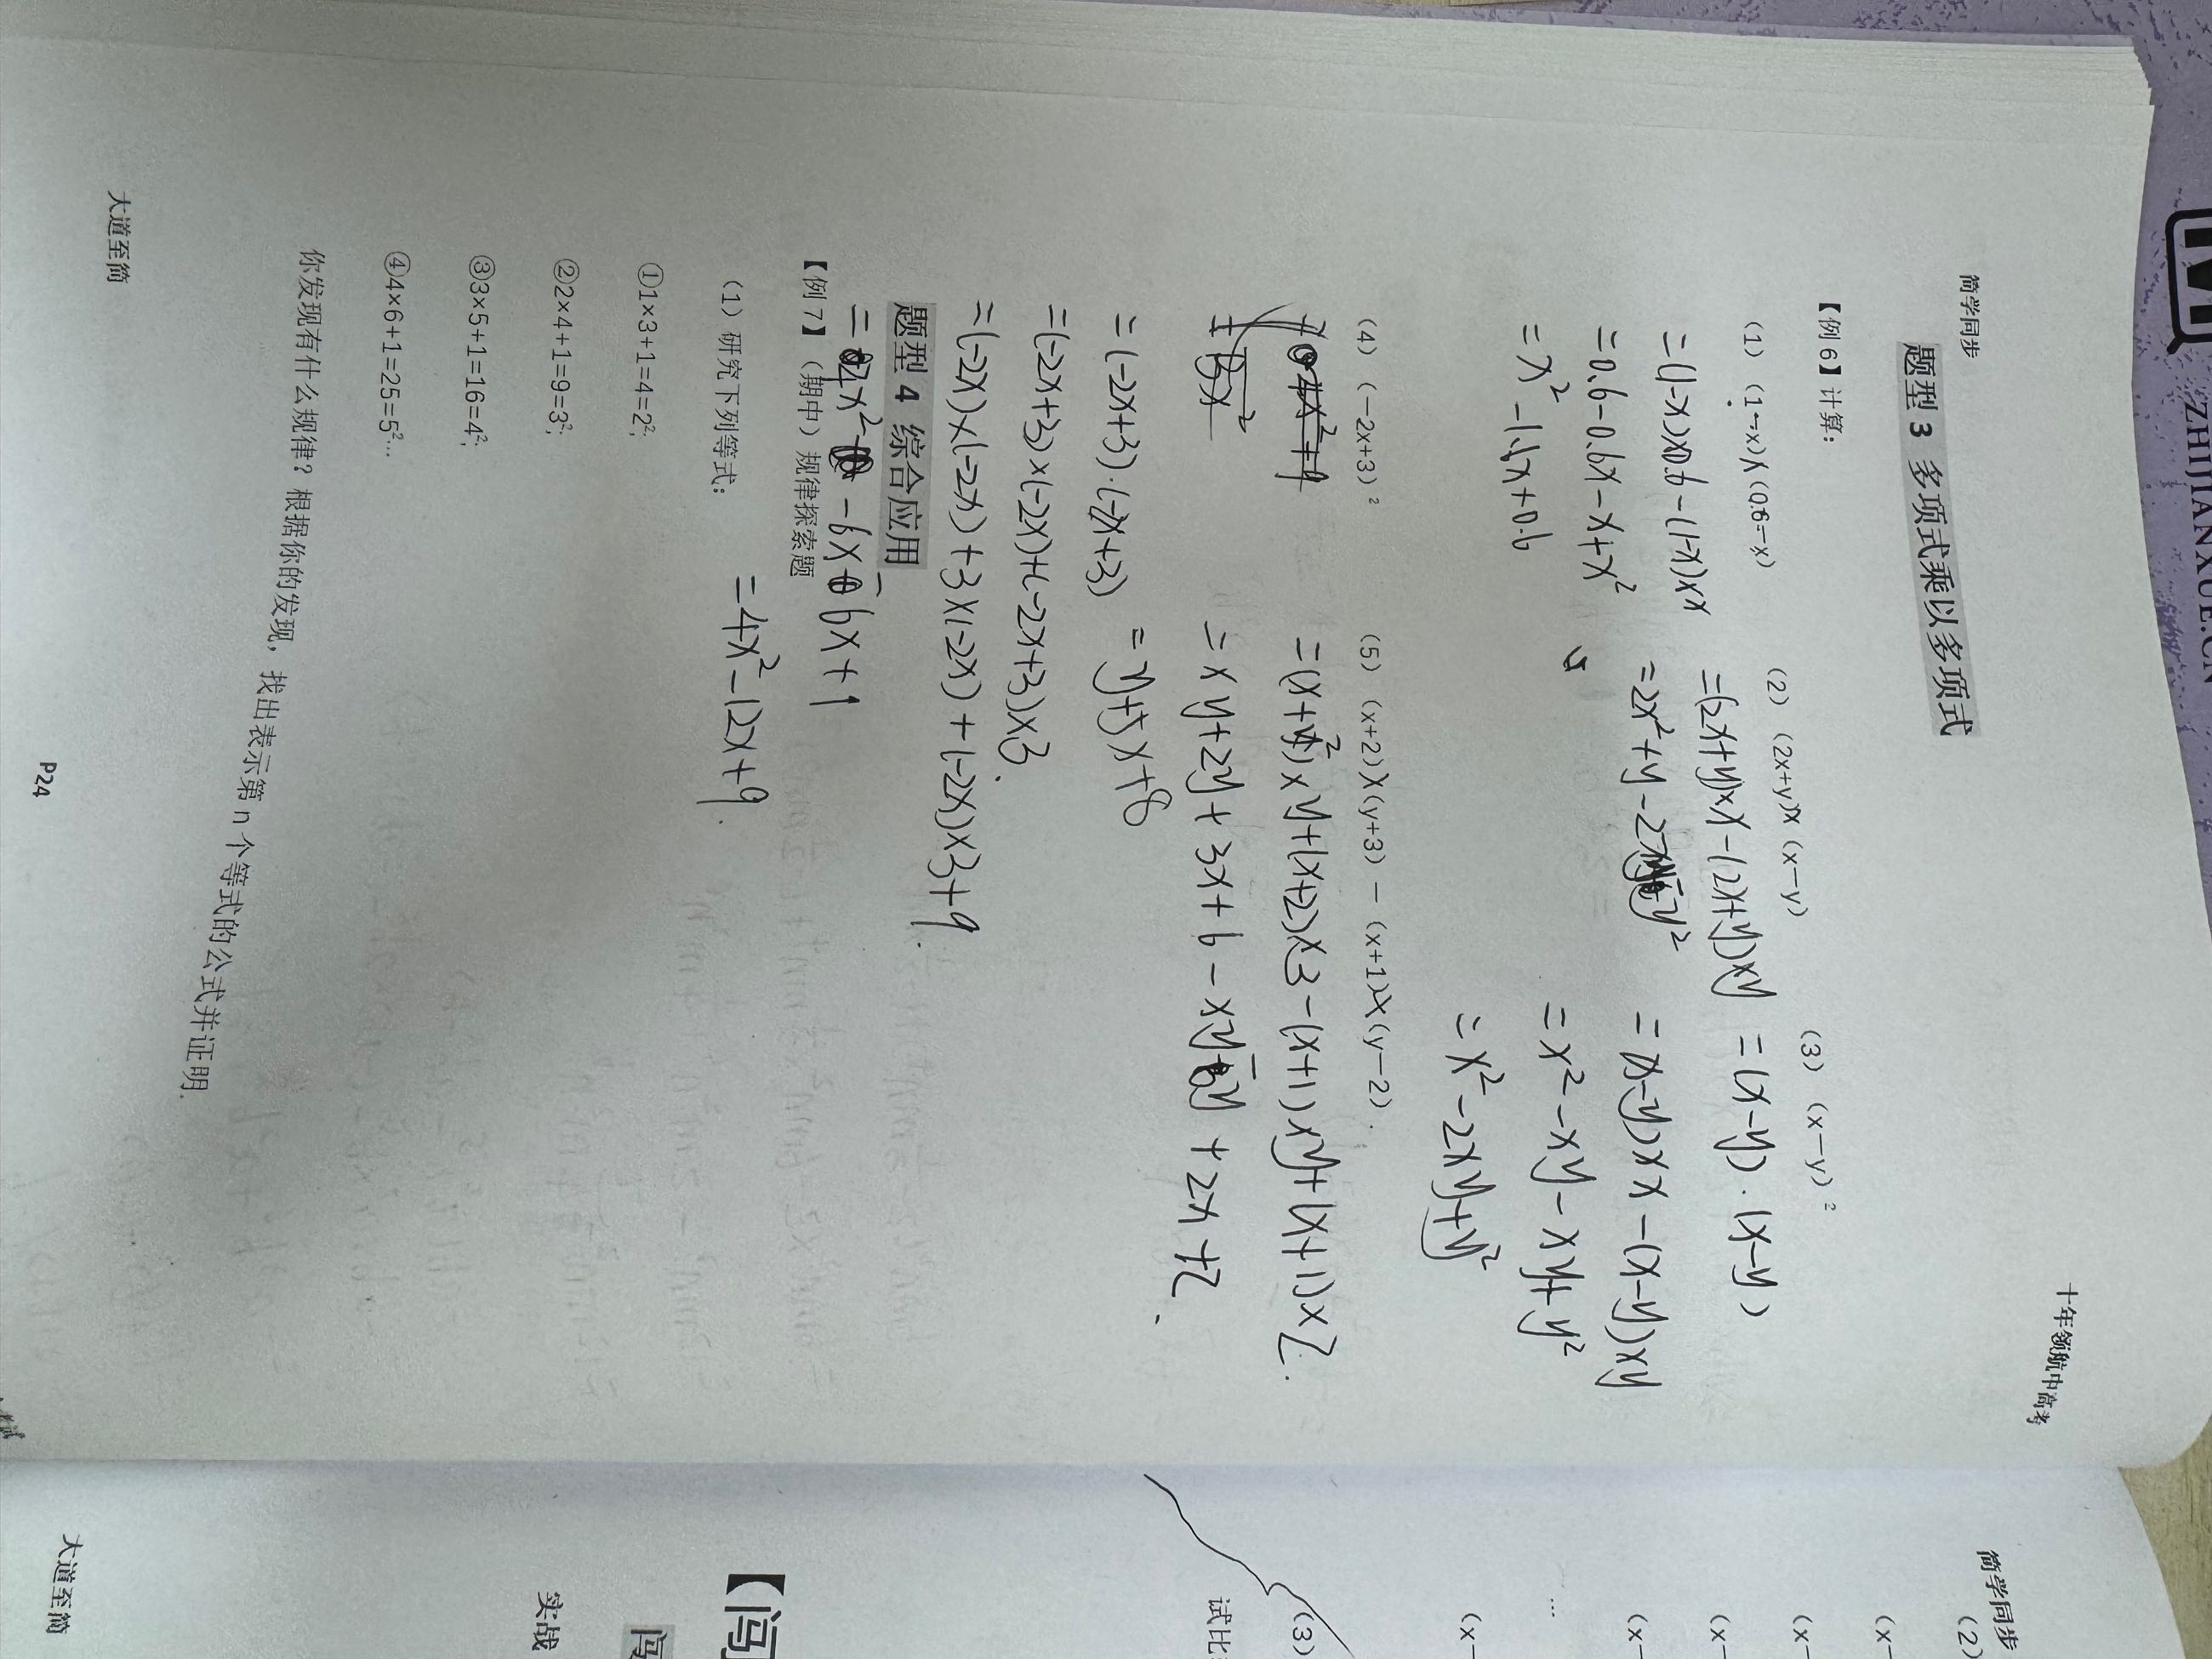 ZHIJIANXUE.CN
简学同步
十年领航中高考
题型 3 多项式乘以多项式
【例 6】计算：
(1) (1-x)×(0.6-x)
=(1-x)×0.6-(1-x)×x
=0.6-0.6x-x+x²
=x²-1.5x+0.6
(2) (2x+y)×(x-y)
=(2x+y)×x-(2x+y)×y
(3) (x-y)²
=(x-y)·(x-y)
=(x-y)×x-(x-y)×y
=x²-xy-xy+y²
=x²-2xy+y²
(4) (-2x+3)²
=(-2x+3)·(-2x+3)
=(-2x+3)×(-2x)+(-2x+3)×3.
=(-2x)×(-2x)+3×(-2x)+(-2x)×3+9.
-6x-6x+1
=4x²-12x+9.
(5) (x+2)×(y+3)-(x+1)×(y-2).
=(x+2)×y+(x+2)×3-(x+1)×y+(x+1)×2.
=xy+2y+3x+6-xy-y+2x+2.
=y+5x+8
题型 4 综合应用
【例 7】（期中）规律探索题
（1）研究下列等式：
①1×3+1=4=2²;
②2×4+1=9=3²;
③3×5+1=16=4²;
④4×6+1=25=5²…
你发现有什么规律？根据你的发现，找出表示第 n 个等式的公式并证明.
大道至简
P24
简学同步
(2)
(x-
(x-
(x-
(x-
…
(x-
(3)
试比
【闯
闯
实战
大道至简